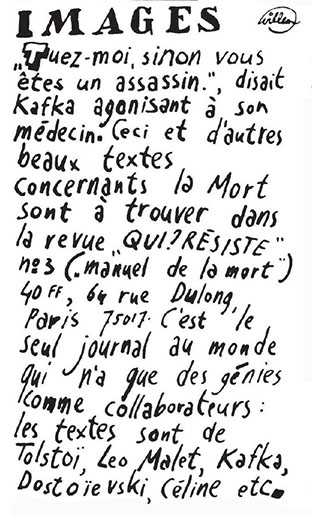 IMAGES
Willem
„Tuez-moi, sinon vous
êtes un assassin.", disait
Kafka agonisant à son
médecin. Ceci et d'autres
beaux textes
concernants la Mort
sont à trouver dans
la revue „QUI?RÉSISTE"
no3 („manuel de la mort")
40 FF, 64 rue Dulong,
Paris 75017. C'est le
seul journal au monde
qui n'a que des génies
comme collaborateurs:
les textes sont de
Tolstoï, Leo Malet, Kafka,
Dostoïevski, Céline etc.